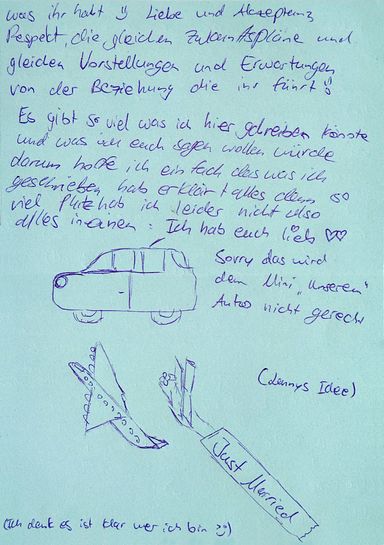 was ihr habt :) Liebe und Akzeptanz
Respekt, die gleichen Zukunftspläne und
gleichen Vorstellungen und Erwartungen
von der Beziehung die ihr führt :)
Es gibt so viel was ich hier schreiben könnte
und was ich euch sagen wollen würde
darum hoffe ich einfach das was ich
geschrieben hab erklärt alles denn so
viel Platz hab ich leider nicht also
alles in einem: Ich hab euch lieb ♡♡
Sorry das wird
dem Mini „unserem“
Autoo nicht gerecht
(Dennys Idee)
Just Married
(Ich denk es ist klar wer ich bin :))